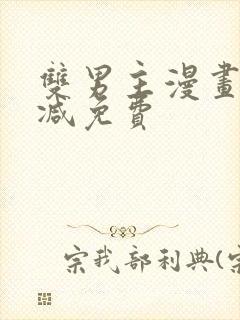 雙男主漫畫
減免費
宗我部利典(宗